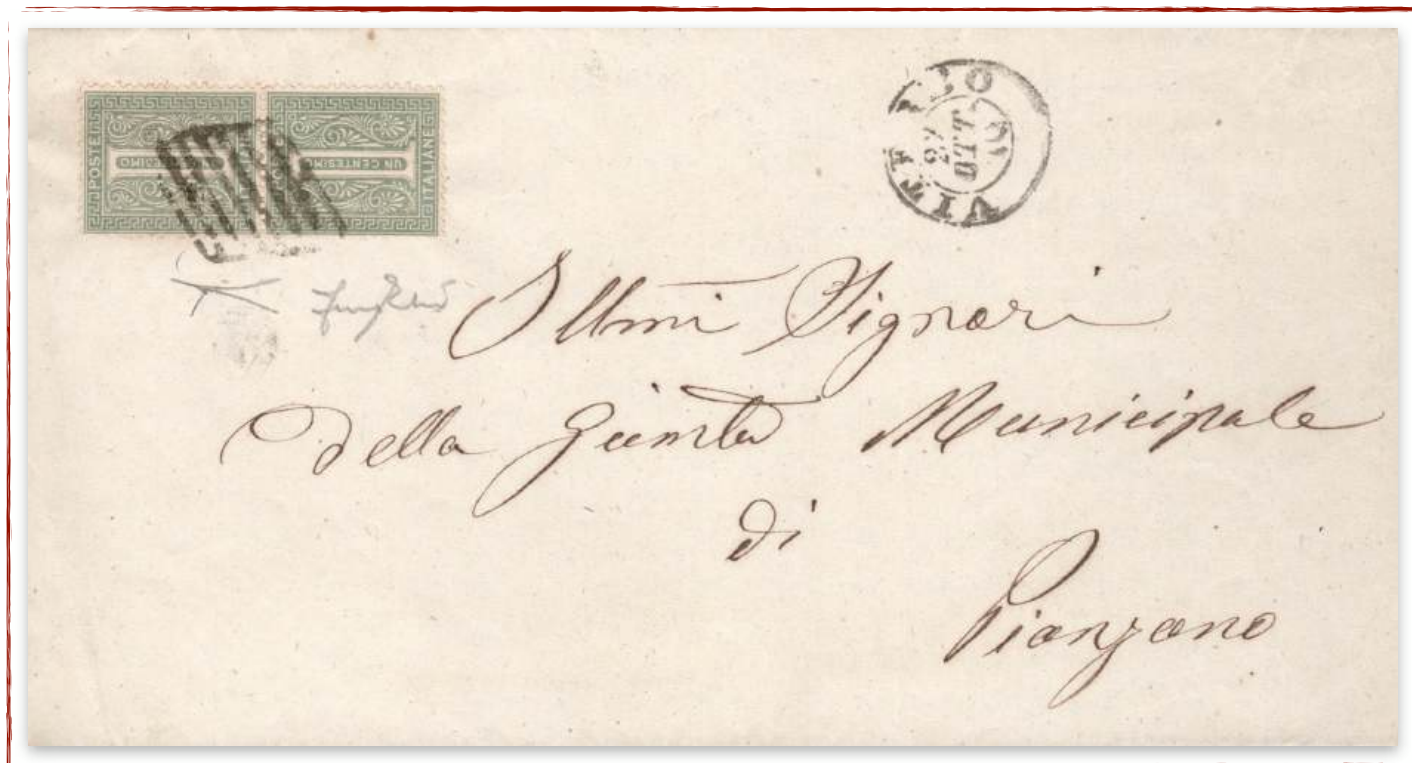 POSTE ITALIANE
UN CENTESIMO
27
OTT
Illmi Signori
della Giunta Municipale
di
Pianzano